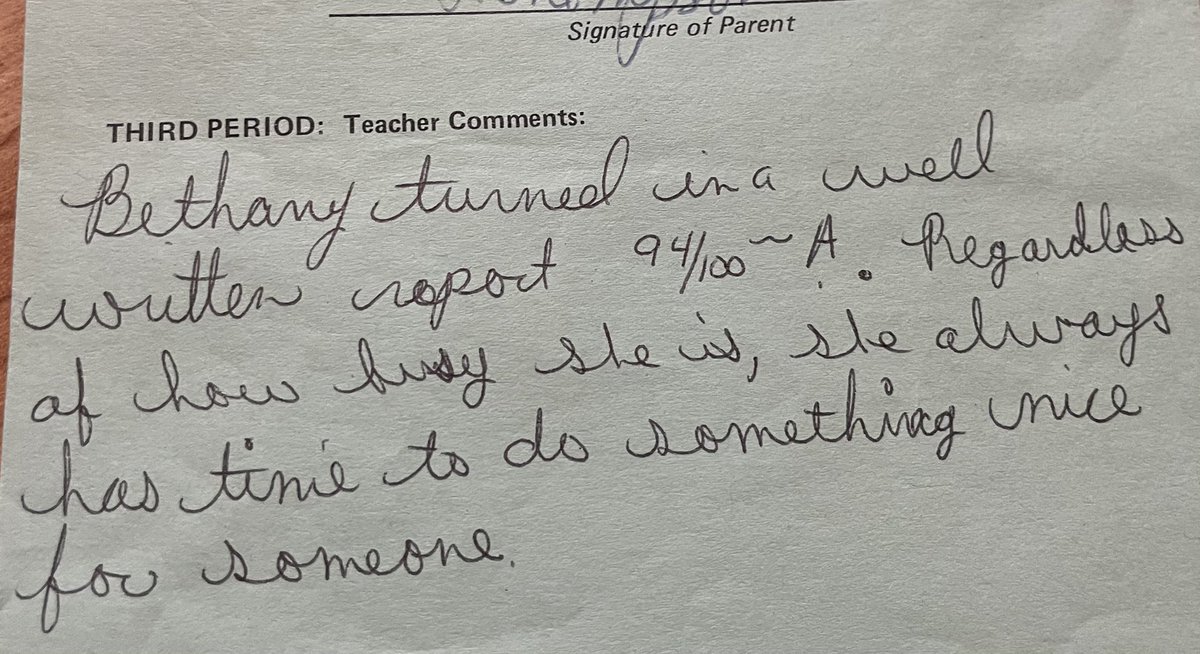 Signature of Parent
THIRD PERIOD: Teacher Comments:
Bethany turned in a well
written report 94/100 ~ A. Regardless
of how busy she is, she always
has time to do something nice
for someone.